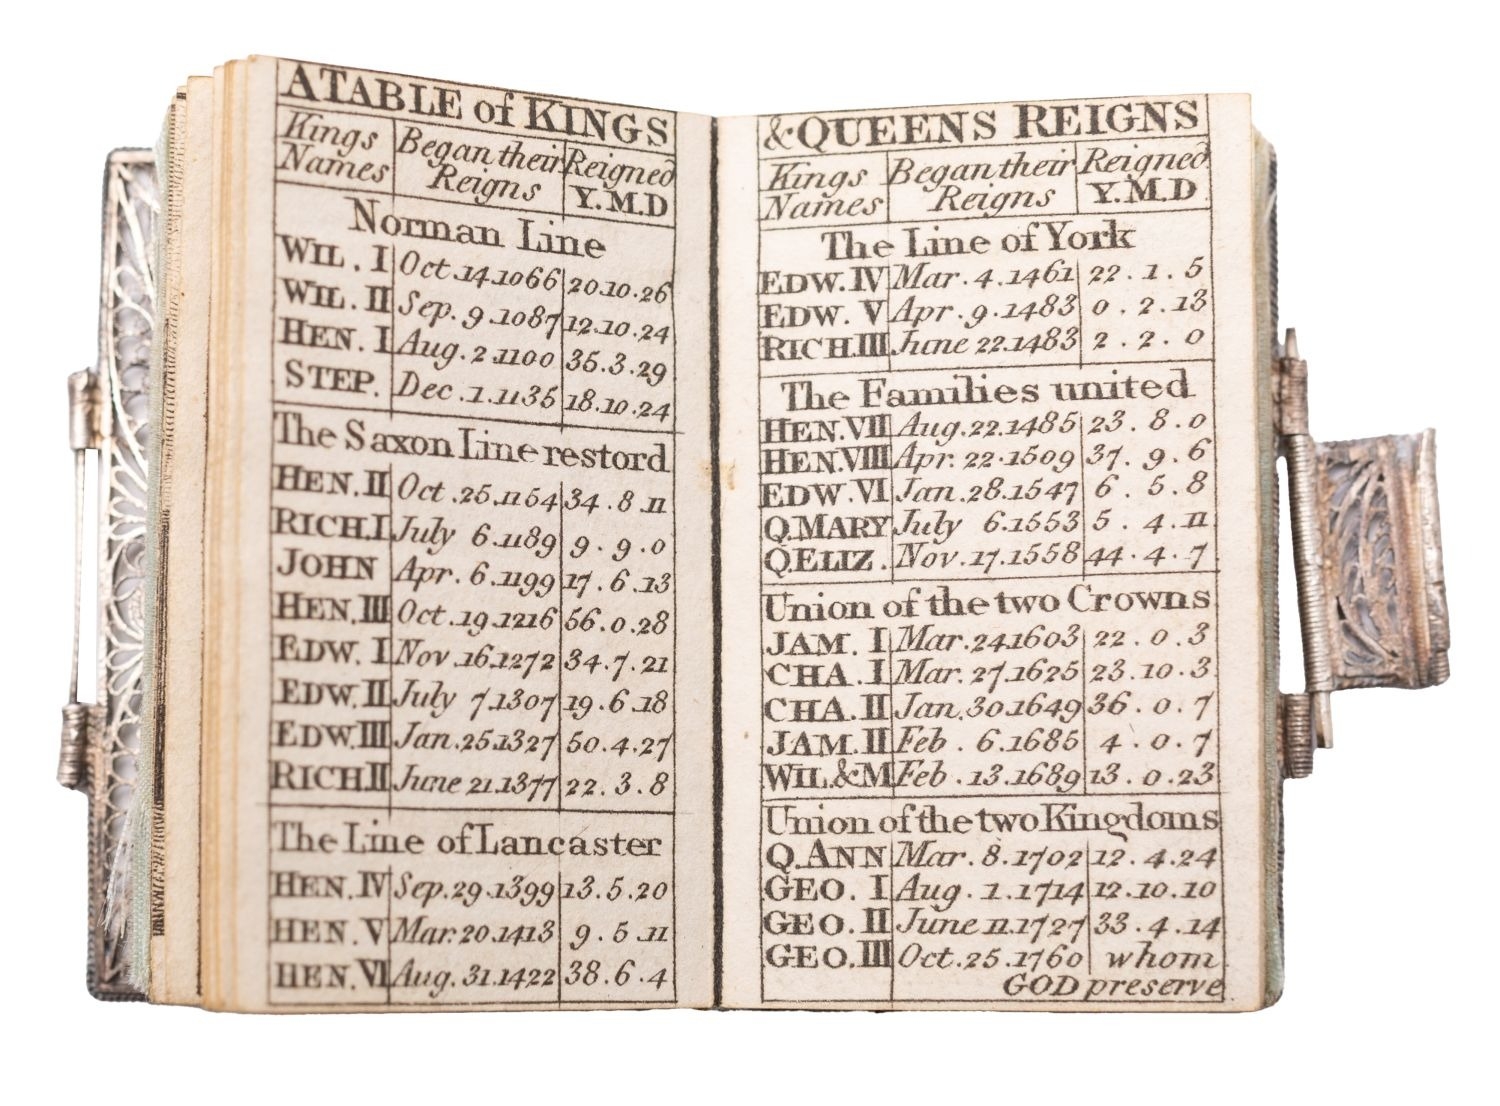 A TABLE of KINGS
Kings Names Began their Reigns Reigned Y.M.D
Norman Line
WIL. I Oct.14.1066 20.10.26
WIL. II Sep. 9.1087 12.10.24
HEN. I Aug. 2.1100 35.3.29
STEP. Dec. 1.1135 18.10.24
The Saxon Line restord
HEN. II Oct.25.1154 34.8.11
RICH. I July 6.1189 9.9.0
JOHN Apr. 6.1199 17.6.13
HEN. III Oct.19.1216 56.0.28
EDW. I Nov.16.1272 34.7.21
EDW. II July 7.1307 19.6.18
EDW. III Jan.25.1327 50.4.27
RICH II June 21.1377 22.3.8
The Line of Lancaster
HEN. IV Sep.29.1399 13.5.20
HEN. V Mar.20.1413 9.5.11
HEN. VI Aug.31.1422 38.6.4
& QUEENS REIGNS
Kings Names Began their Reigns Reigned Y.M.D
The Line of York
EDW. IV Mar. 4.1461 22.1.5
EDW. V Apr. 9.1483 0.2.13
RICH. III June 22.1483 2.2.0
The Families united
HEN. VII Aug.22.1485 23.8.0
HEN. VIII Apr. 22.1509 37.9.6
EDW. VI Jan.28.1547 6.5.8
Q.MARY July 6.1553 5.4.11
Q.ELIZ. Nov.17.1558 44.4.7
Union of the two Crowns
JAM. I Mar.24.1603 22.0.3
CHA. I Mar.27.1625 23.10.3
CHA. II Jan.30.1649 36.0.7
JAM. II Feb. 6.1685 4.0.7
WIL.&M Feb.13.1689 13.0.23
Union of the two Kingdoms
Q.ANN Mar. 8.1702 12.4.24
GEO. I Aug. 1.1714 12.10.10
GEO. II June 11.1727 33.4.14
GEO. III Oct.25.1760 whom
GOD preserve